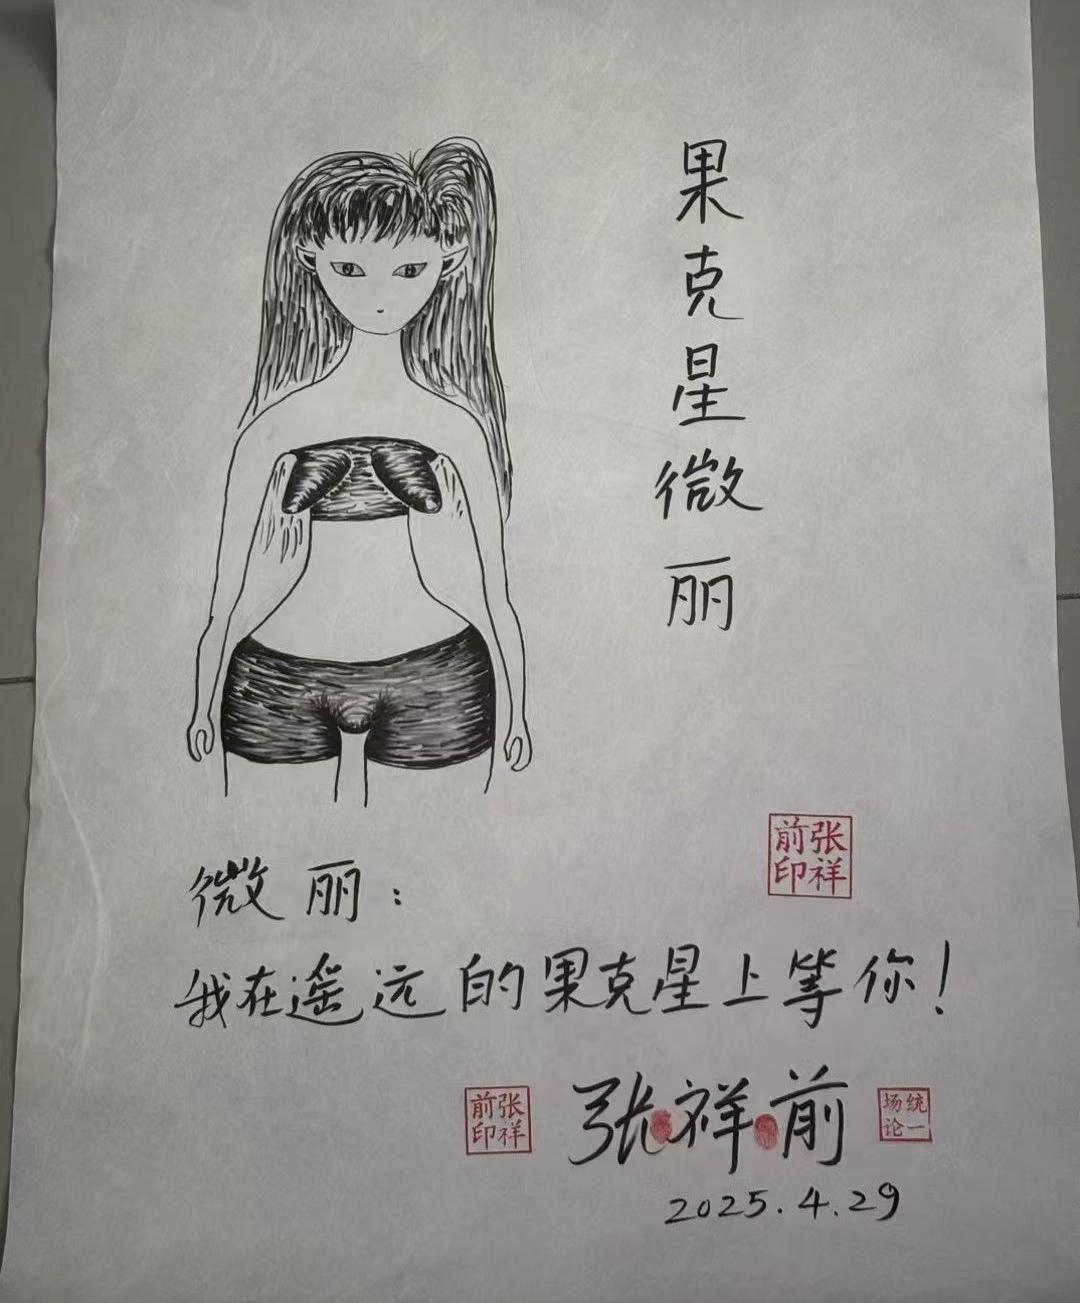 果克星微丽
张祥前印
微丽：
我在遥远的果克星上等你！
张祥前印
张祥前
统一场论
2025.4.29